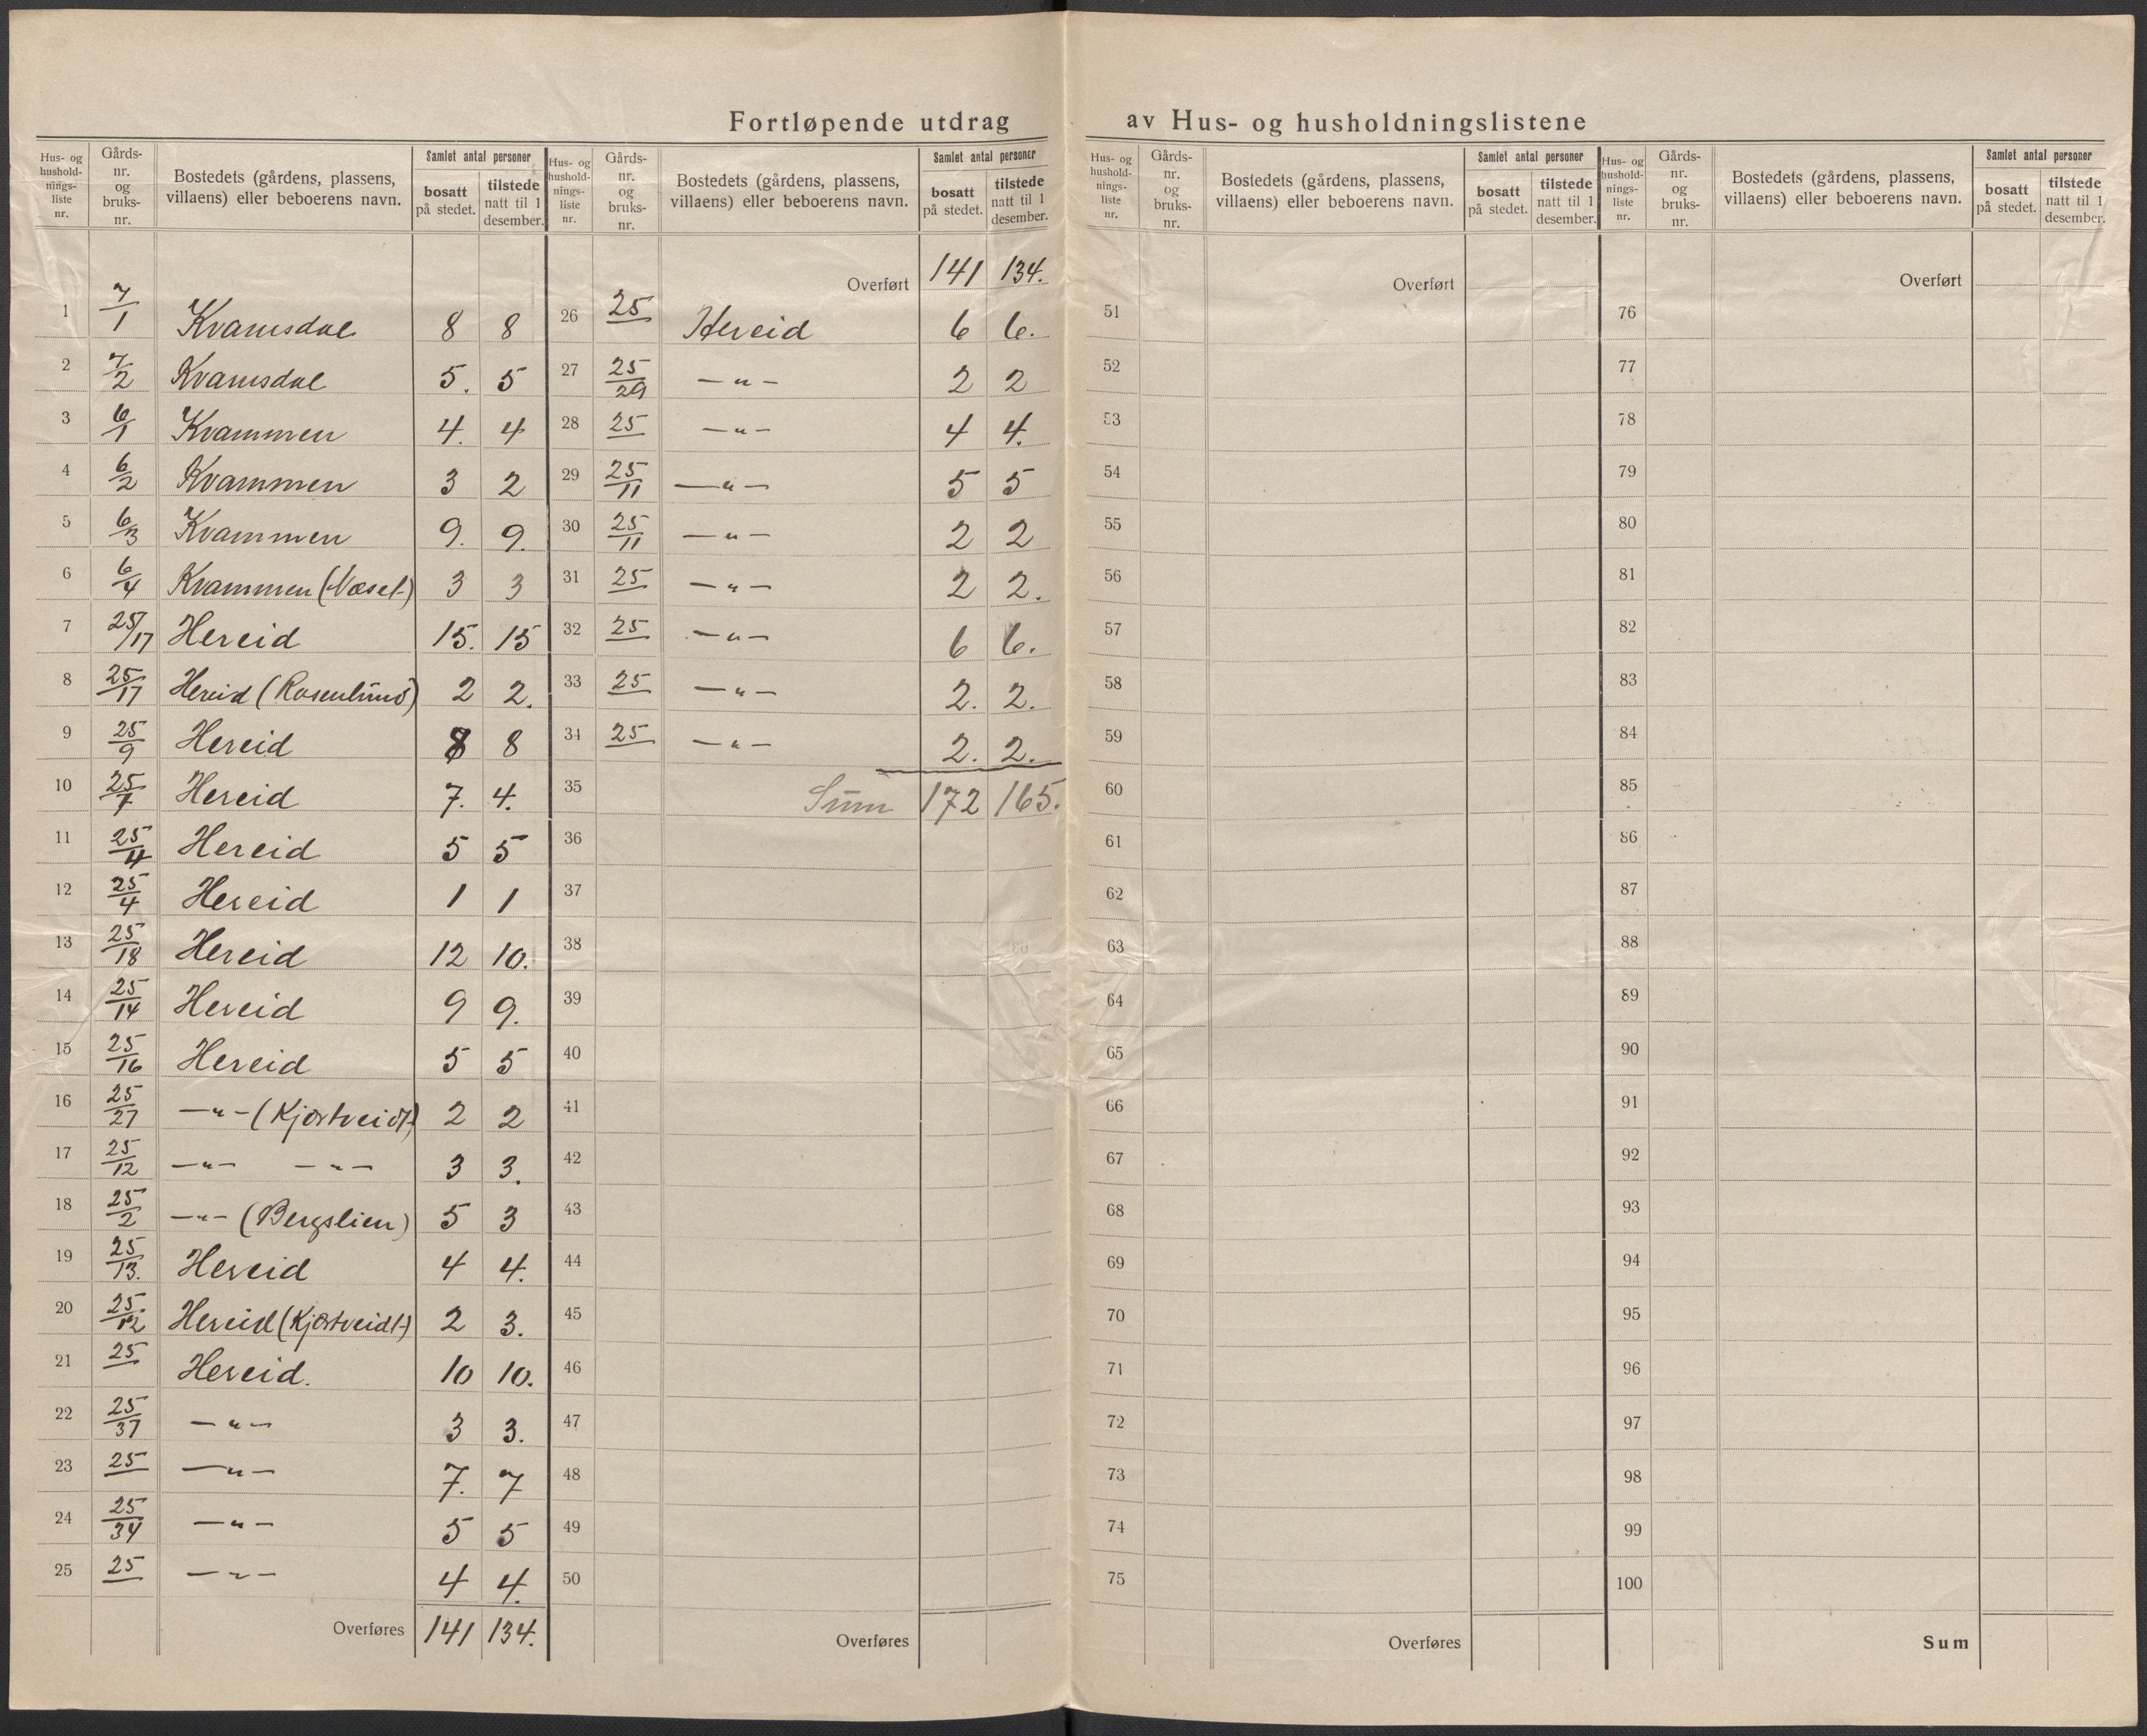 Fortløpende utdrag av Hus- og husholdningslistene
Hus- og hushold-nings-liste nr. | Gårds-nr. og bruks-nr. | Bostedets (gårdens, plassens, villaens) eller beboerens navn. | Samlet antal personer | bosatt på stedet. | tilstede natt til 1 desember.
1 7/1 Kvamsdal 8 8
2 7/2 Kvamsdal 5. 5
3 6/1 Kvammen 4. 4
4 6/2 Kvammen 3 2
5 6/3 Kvammen 9. 9.
6 6/4 Kvammen (Næset) 3 3
7 25/17 Hereid 15. 15
8 25/17 Hereid (Rosenlund) 2 2.
9 25/9 Hereid 8 8
10 25/7 Hereid 7. 4.
11 25/4 Hereid 5 5
12 25/4 Hereid 1 1
13 25/18 Hereid 12 10.
14 25/14 Hereid 9 9.
15 25/16 Hereid 5 5
16 25/27 —"— (Kjortveidt) 2 2
17 25/12 —"— —"— 3 3.
18 25/2 —"— (Bergslien) 5 3
19 25/13. Hereid 4 4.
20 25/12 Hereid (Kjortveidt) 2 3.
21 25 Hereid. 10 10.
22 25/37 —"— 3 3.
23 25 —"— 7. 7
24 25/34 —"— 5 5
25 25 —"— 4 4.
Overføres 141 134.
Hus- og hushold-nings-liste nr. | Gårds-nr. og bruks-nr. | Bostedets (gårdens, plassens, villaens) eller beboerens navn. | Samlet antal personer | bosatt på stedet. | tilstede natt til 1 desember.
Overført 141 134.
26 25 Hereid 6 6.
27 25/29 —"— 2 2
28 25 —"— 4 4.
29 25/11 —"— 5 5
30 25/11 —"— 2 2
31 25 —"— 2 2.
32 25 —"— 6 6.
33 25 —"— 2. 2.
34 25 —"— 2. 2.
35 Sum 172 165.
36
37
38
39
40
41
42
43
44
45
46
47
48
49
50
Overføres
Hus- og hushold-nings-liste nr. | Gårds-nr. og bruks-nr. | Bostedets (gårdens, plassens, villaens) eller beboerens navn. | Samlet antal personer | bosatt på stedet. | tilstede natt til 1 desember.
Overført
51
52
53
54
55
56
57
58
59
60
61
62
63
64
65
66
67
68
69
70
71
72
73
74
75
Overføres
Hus- og hushold-nings-liste nr. | Gårds-nr. og bruks-nr. | Bostedets (gårdens, plassens, villaens) eller beboerens navn. | Samlet antal personer | bosatt på stedet. | tilstede natt til 1 desember.
Overført
76
77
78
79
80
81
82
83
84
85
86
87
88
89
90
91
92
93
94
95
96
97
98
99
100
Sum